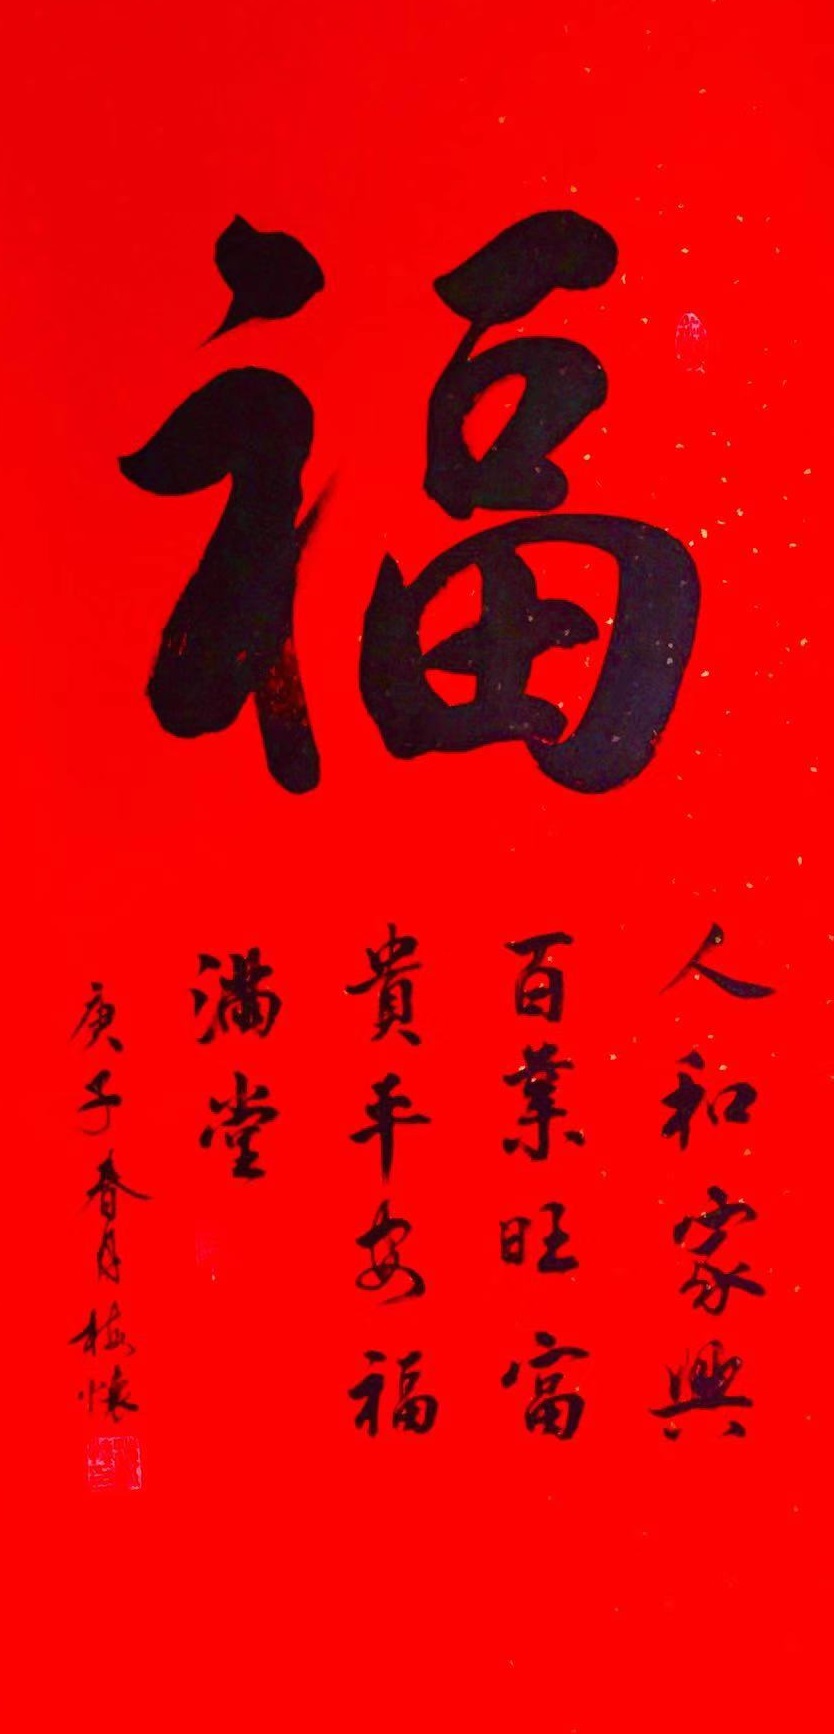 福
人和家興
百業旺富
貴平安福
滿堂
庚子春月梅懷